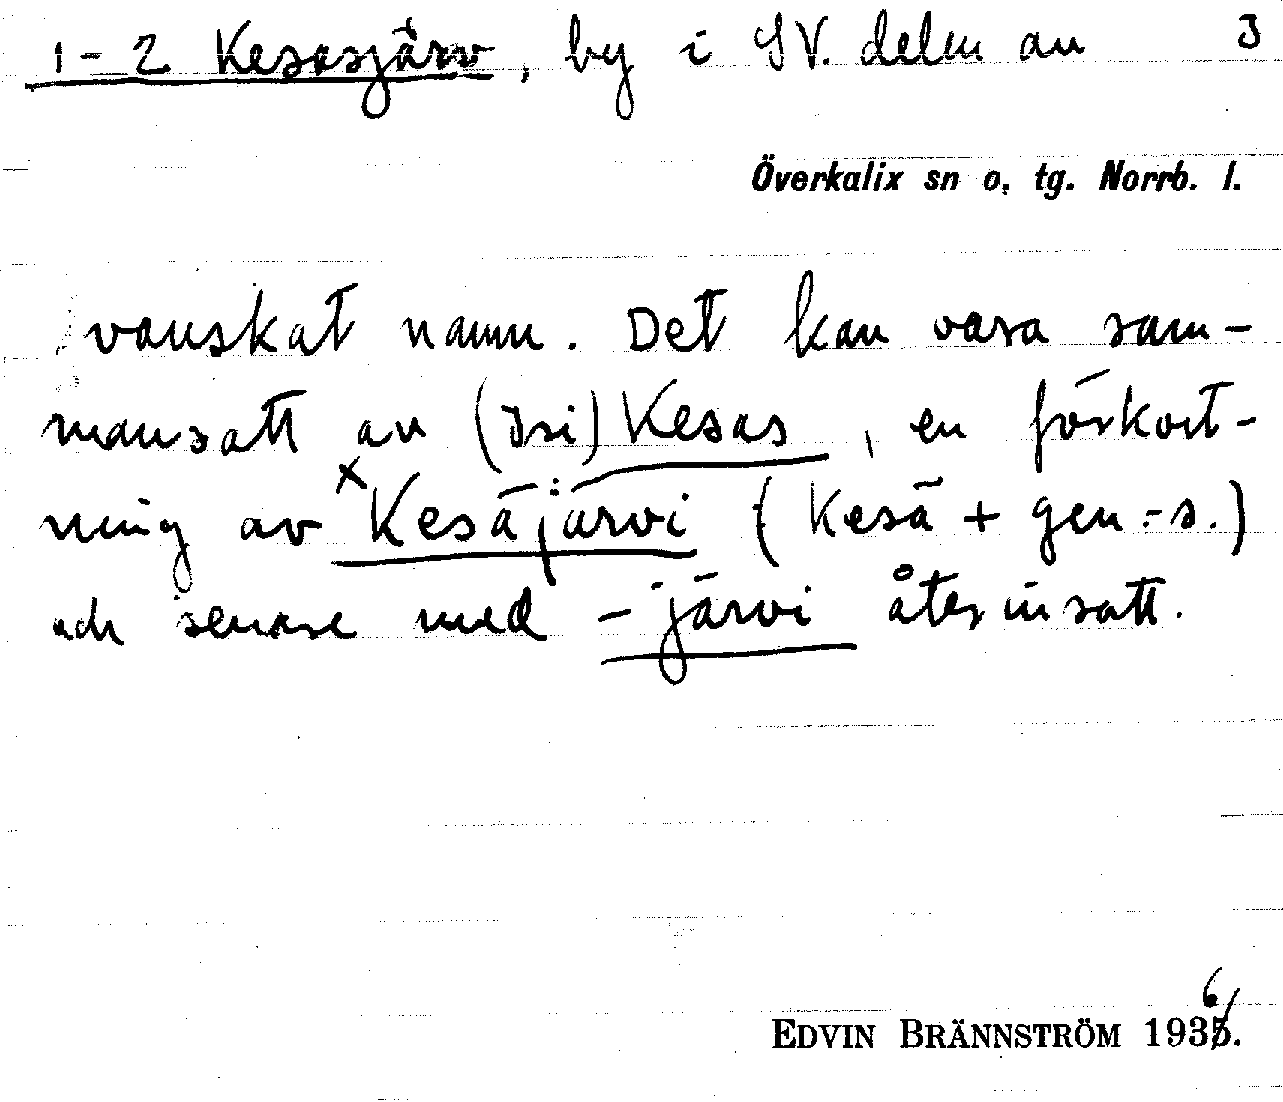 1-2 Kesasjärv, by i SV. delen av 3
Överkalix sn o. tg. Norrb. l.
vanskat namn. Det kan vara sam-
mansatt av Kesas, en förkort-
ning av ˣKesäjärvi (Kesä + gen.-s.)
och senare med -järvi återinsatt.
EDVIN BRÄNNSTRÖM 1936.